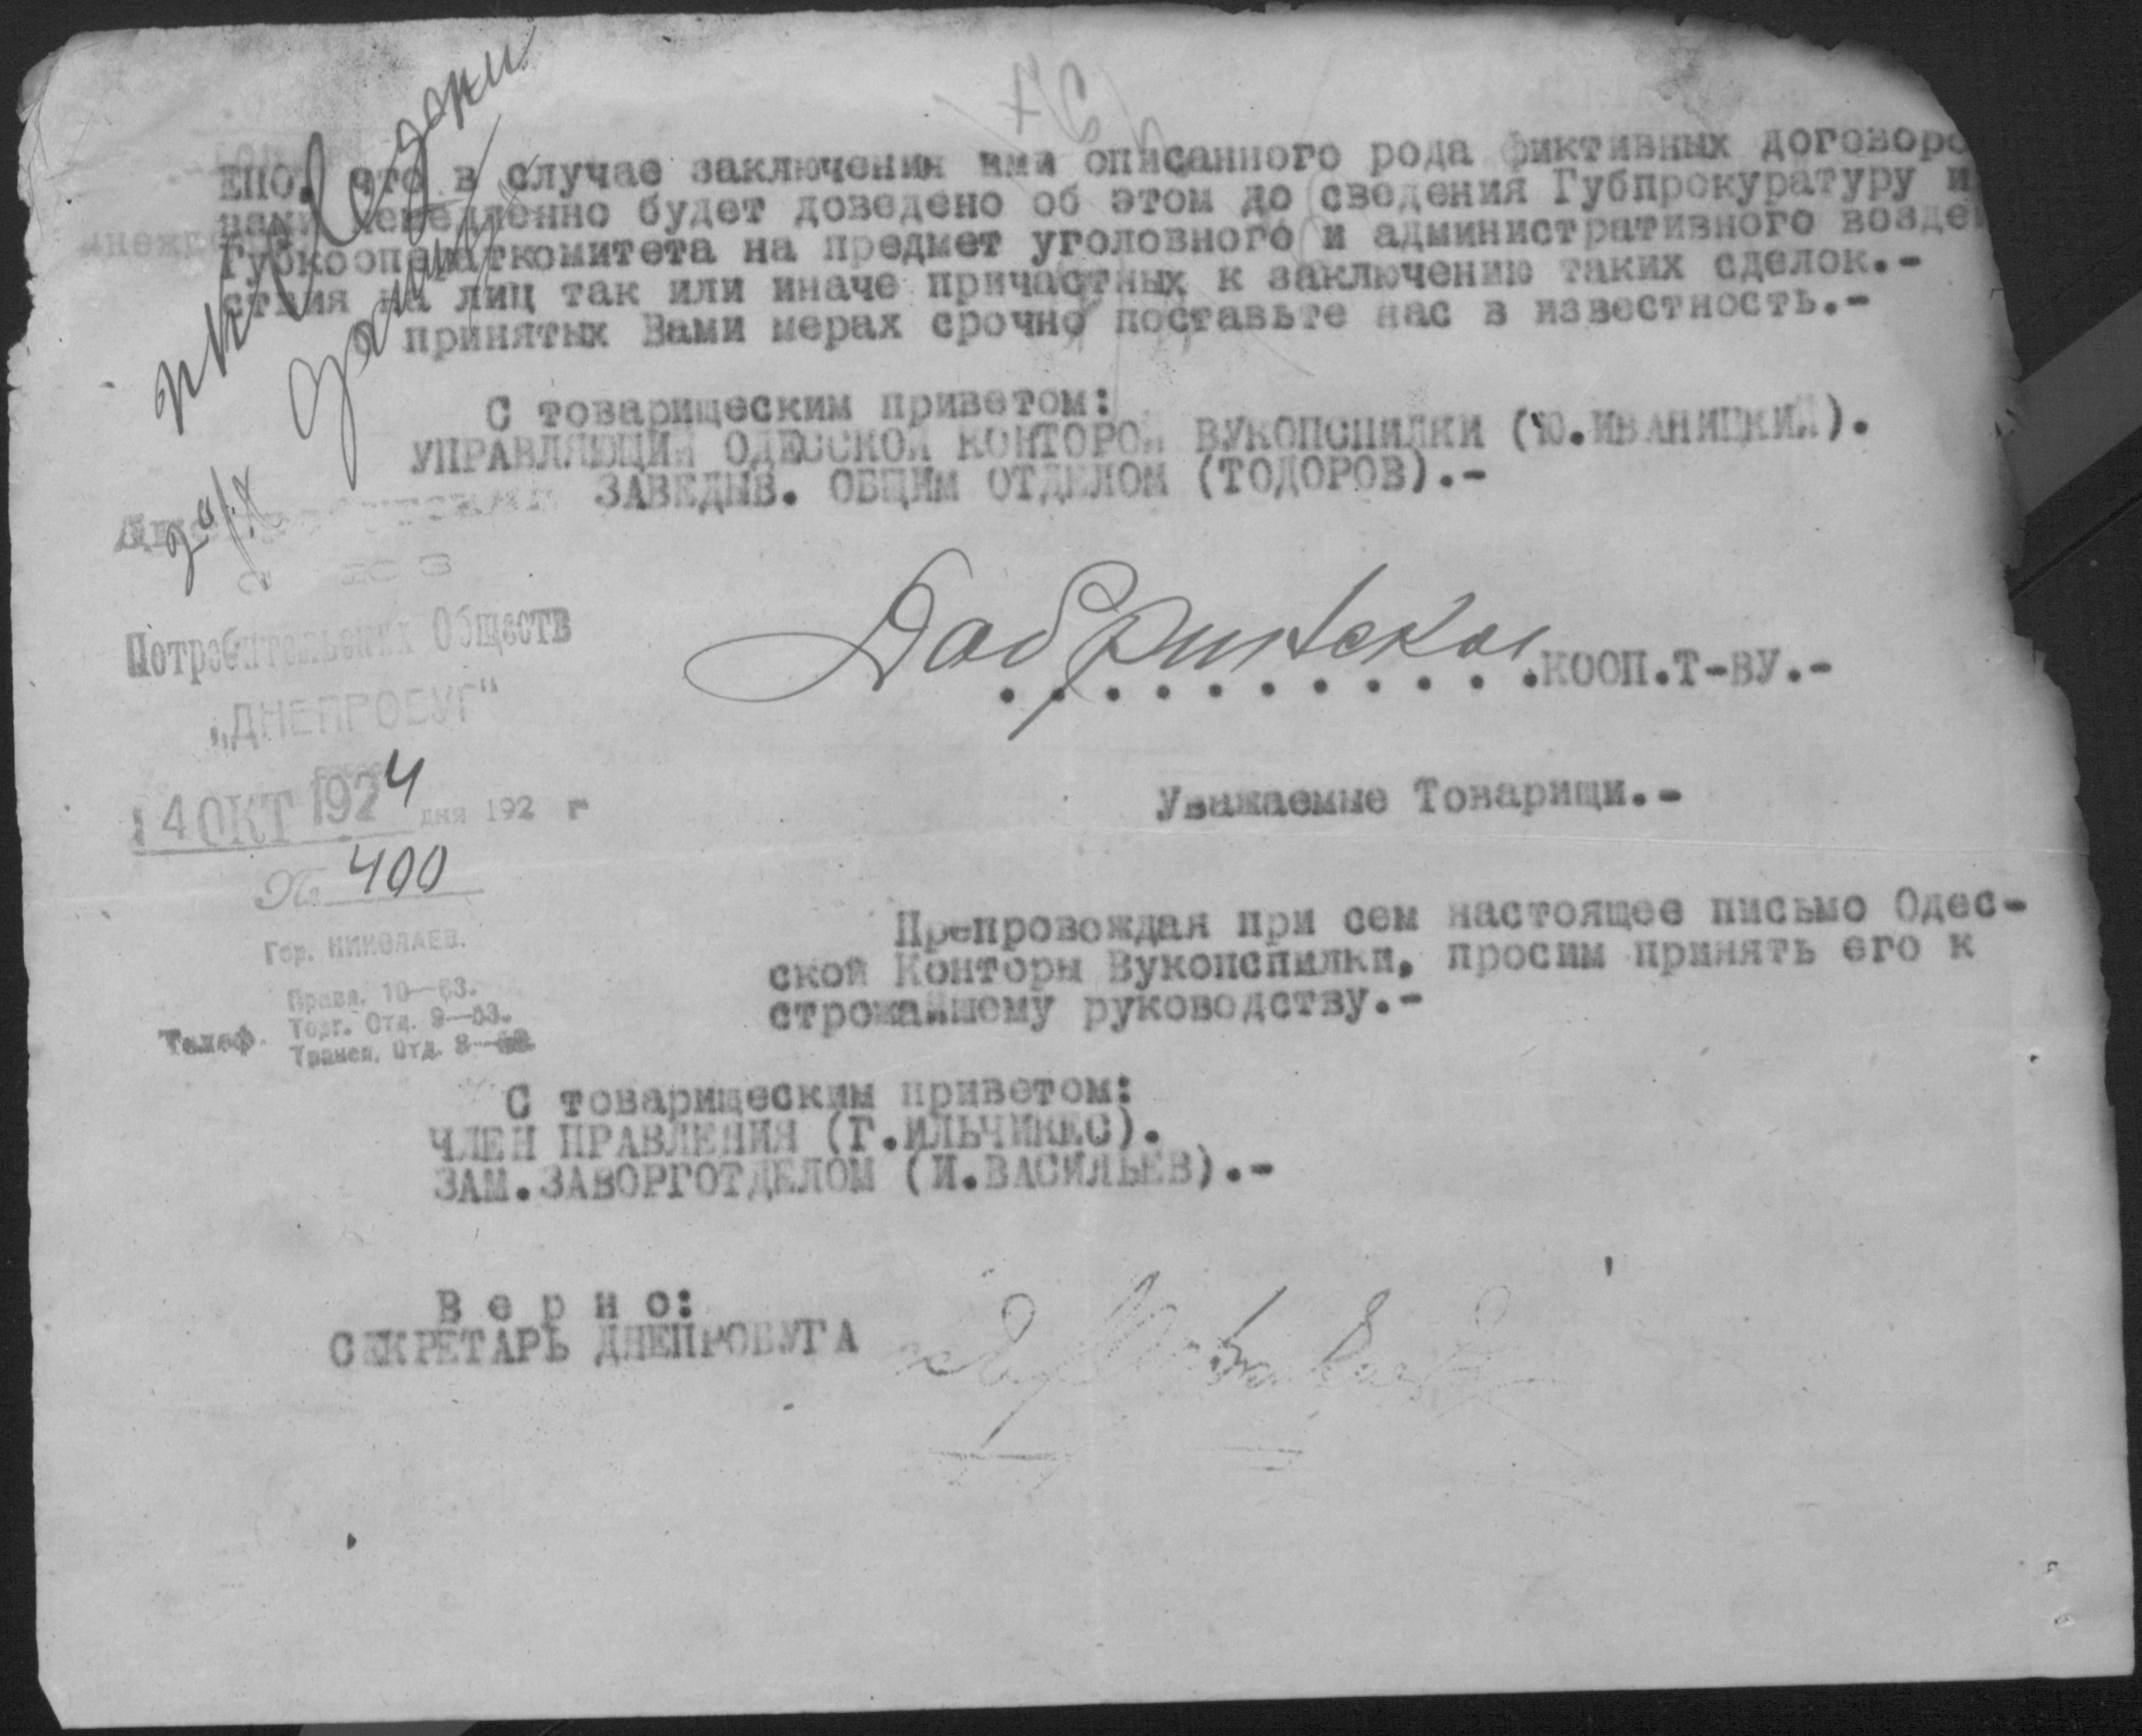 ЕПО. что в случае заключения ими описанного рода фиктивных договоро
нами немедленно будет доведено об этом до сведения Губпрокуратуру и
Губкооператкомитета на предмет уголовного и административного воздей
ствия на лиц так или иначе причастных к заключению таких сделок.-
О принятых Вами мерах срочно поставьте нас в известность.-
С товарищеским приветом:
УПРАВЛЯЮЩИЙ ОДЕССКОЙ КОНТОРОЙ ВУКОПСПИЛКИ (Ю.ИВАНИЦКИЙ).
ЗАВЕДЫВ. ОБЩИМ ОТДЕЛОМ (ТОДОРОВ).-
Потребительских Обществ
„ДНЕПРОБУГ“
14 ОКТ 1924 дня 192 г
№ 400
Гор. НИКОЛАЕВ.
Телеф.
Правл. 10—63.
Торг. Отд. 9—53.
Трансп. Отд. 8—
Добринское
. . . . . . . . . . .КООП.Т-ВУ.-
Уважаемые Товарищи.-
Препровождая при сем настоящее письмо Одес-
ской Конторы Вукопспилки, просим принять его к
строжайшему руководству.-
С товарищеским приветом:
ЧЛЕН ПРАВЛЕНИЯ (Г.ИЛЬЧИКЕС).
ЗАМ.ЗАВОРГОТДЕЛОМ (И.ВАСИЛЬЕВ).-
В е р н о:
СЕКРЕТАРЬ ДНЕПРОБУГА